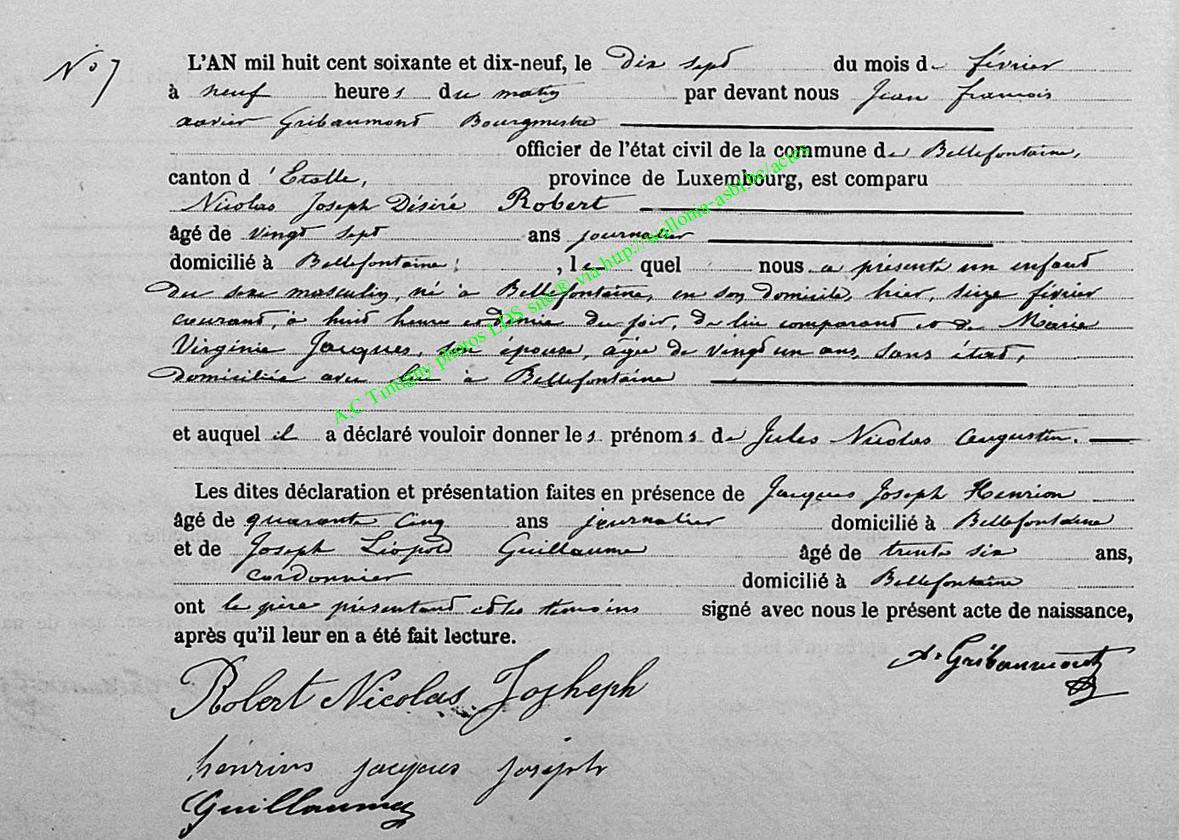 N° 7
L'AN mil huit cent soixante et dix-neuf, le dix sept du mois de février
à neuf heures du matin par devant nous Jean François
xavier Gribaumont Bourgmestre
officier de l'état civil de la commune de Bellefontaine,
canton d'Etalle, province de Luxembourg, est comparu
Nicolas Joseph Désiré Robert
âgé de vingt sept ans journalier
domicilié à Bellefontaine, lequel nous a présenté un enfant
du sexe masculin, né à Bellefontaine, en son domicile, hier, seize février
courant, à huit heure et demie du soir, de lui comparant et de Marie
Virginie Jacques, son épouse, âgée de vingt un ans, sans état,
domiciliée avec lui à Bellefontaine
et auquel il a déclaré vouloir donner les prénoms de Jules Nicolas Augustin.
Les dites déclaration et présentation faites en présence de Jacques Joseph Henrion
âgé de quarante cinq ans journalier domicilié à Bellefontaine
et de Joseph Léopold Guillaume âgé de trente six ans,
cordonnier domicilié à Bellefontaine
ont le père présentant et les témoins signé avec nous le présent acte de naissance,
après qu'il leur en a été fait lecture.
Robert Nicolas Josheph
X. Gribaumont
henrion jacques joseph
Guillaume
A.C Tintigny photos LDS site® via http://wallonia-asbl.be/actes